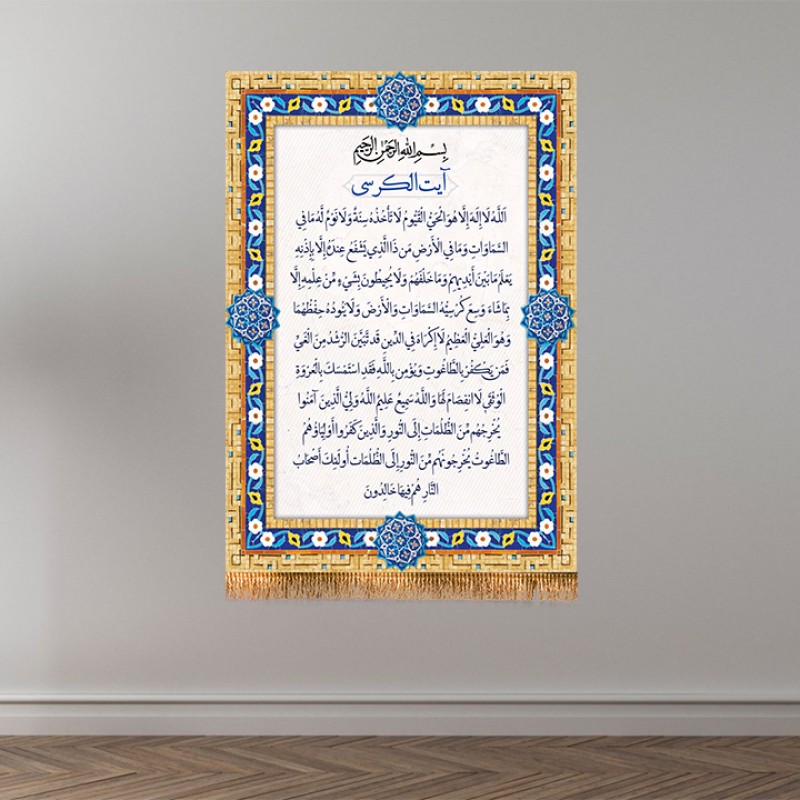 بِسْمِ اللهِ الرَّحْمٰنِ الرَّحِيمِ
آیت الکرسی
اَللَّهُ لَا إِلَهَ إِلَّا هُوَ الْحَيُّ الْقَيُّومُ لَا تَأْخُذُهُ سِنَةٌ وَلَا نَوْمٌ لَهُ مَا فِي
السَّمَاوَاتِ وَمَا فِي الْأَرْضِ مَن ذَا الَّذِي يَشْفَعُ عِندَهُ إِلَّا بِإِذْنِهِ
يَعْلَمُ مَا بَيْنَ أَيْدِيهِمْ وَمَا خَلْفَهُمْ وَلَا يُحِيطُونَ بِشَيْءٍ مِّنْ عِلْمِهِ إِلَّا
بِمَا شَاءَ وَسِعَ كُرْسِيُّهُ السَّمَاوَاتِ وَالْأَرْضَ وَلَا يَئُودُهُ حِفْظُهُمَا
وَهُوَ الْعَلِيُّ الْعَظِيمُ لَا إِكْرَاهَ فِي الدِّينِ قَد تَّبَيَّنَ الرُّشْدُ مِنَ الْغَيِّ
فَمَن يَكْفُرْ بِالطَّاغُوتِ وَيُؤْمِن بِاللَّهِ فَقَدِ اسْتَمْسَكَ بِالْعُرْوَةِ
الْوُثْقَىٰ لَا انفِصَامَ لَهَا وَاللَّهُ سَمِيعٌ عَلِيمٌ اللَّهُ وَلِيُّ الَّذِينَ آمَنُوا
يُخْرِجُهُم مِّنَ الظُّلُمَاتِ إِلَى النُّورِ وَالَّذِينَ كَفَرُوا أَوْلِيَاؤُهُمُ
الطَّاغُوتُ يُخْرِجُونَهُم مِّنَ النُّورِ إِلَى الظُّلُمَاتِ أُولَئِكَ أَصْحَابُ
النَّارِ هُمْ فِيهَا خَالِدُونَ